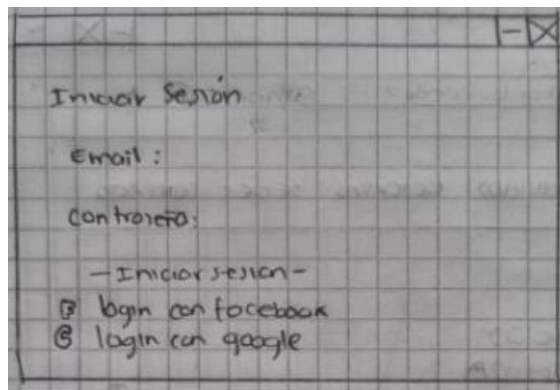 Iniciar Sesión
Email:
Contraseña:
-Iniciar sesion-
F login con facebook
G login con google